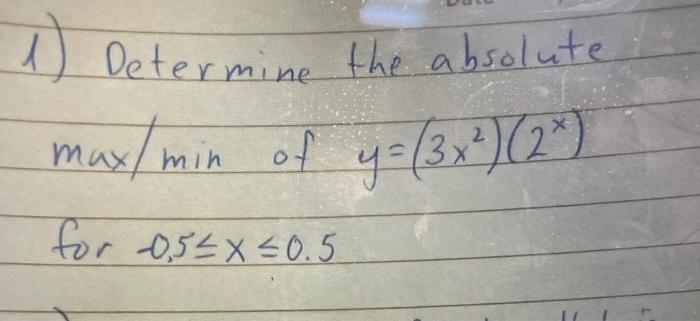 1) Determine the absolute
max/min of y=(3x²)(2ˣ)
for -0,5≤x≤0.5